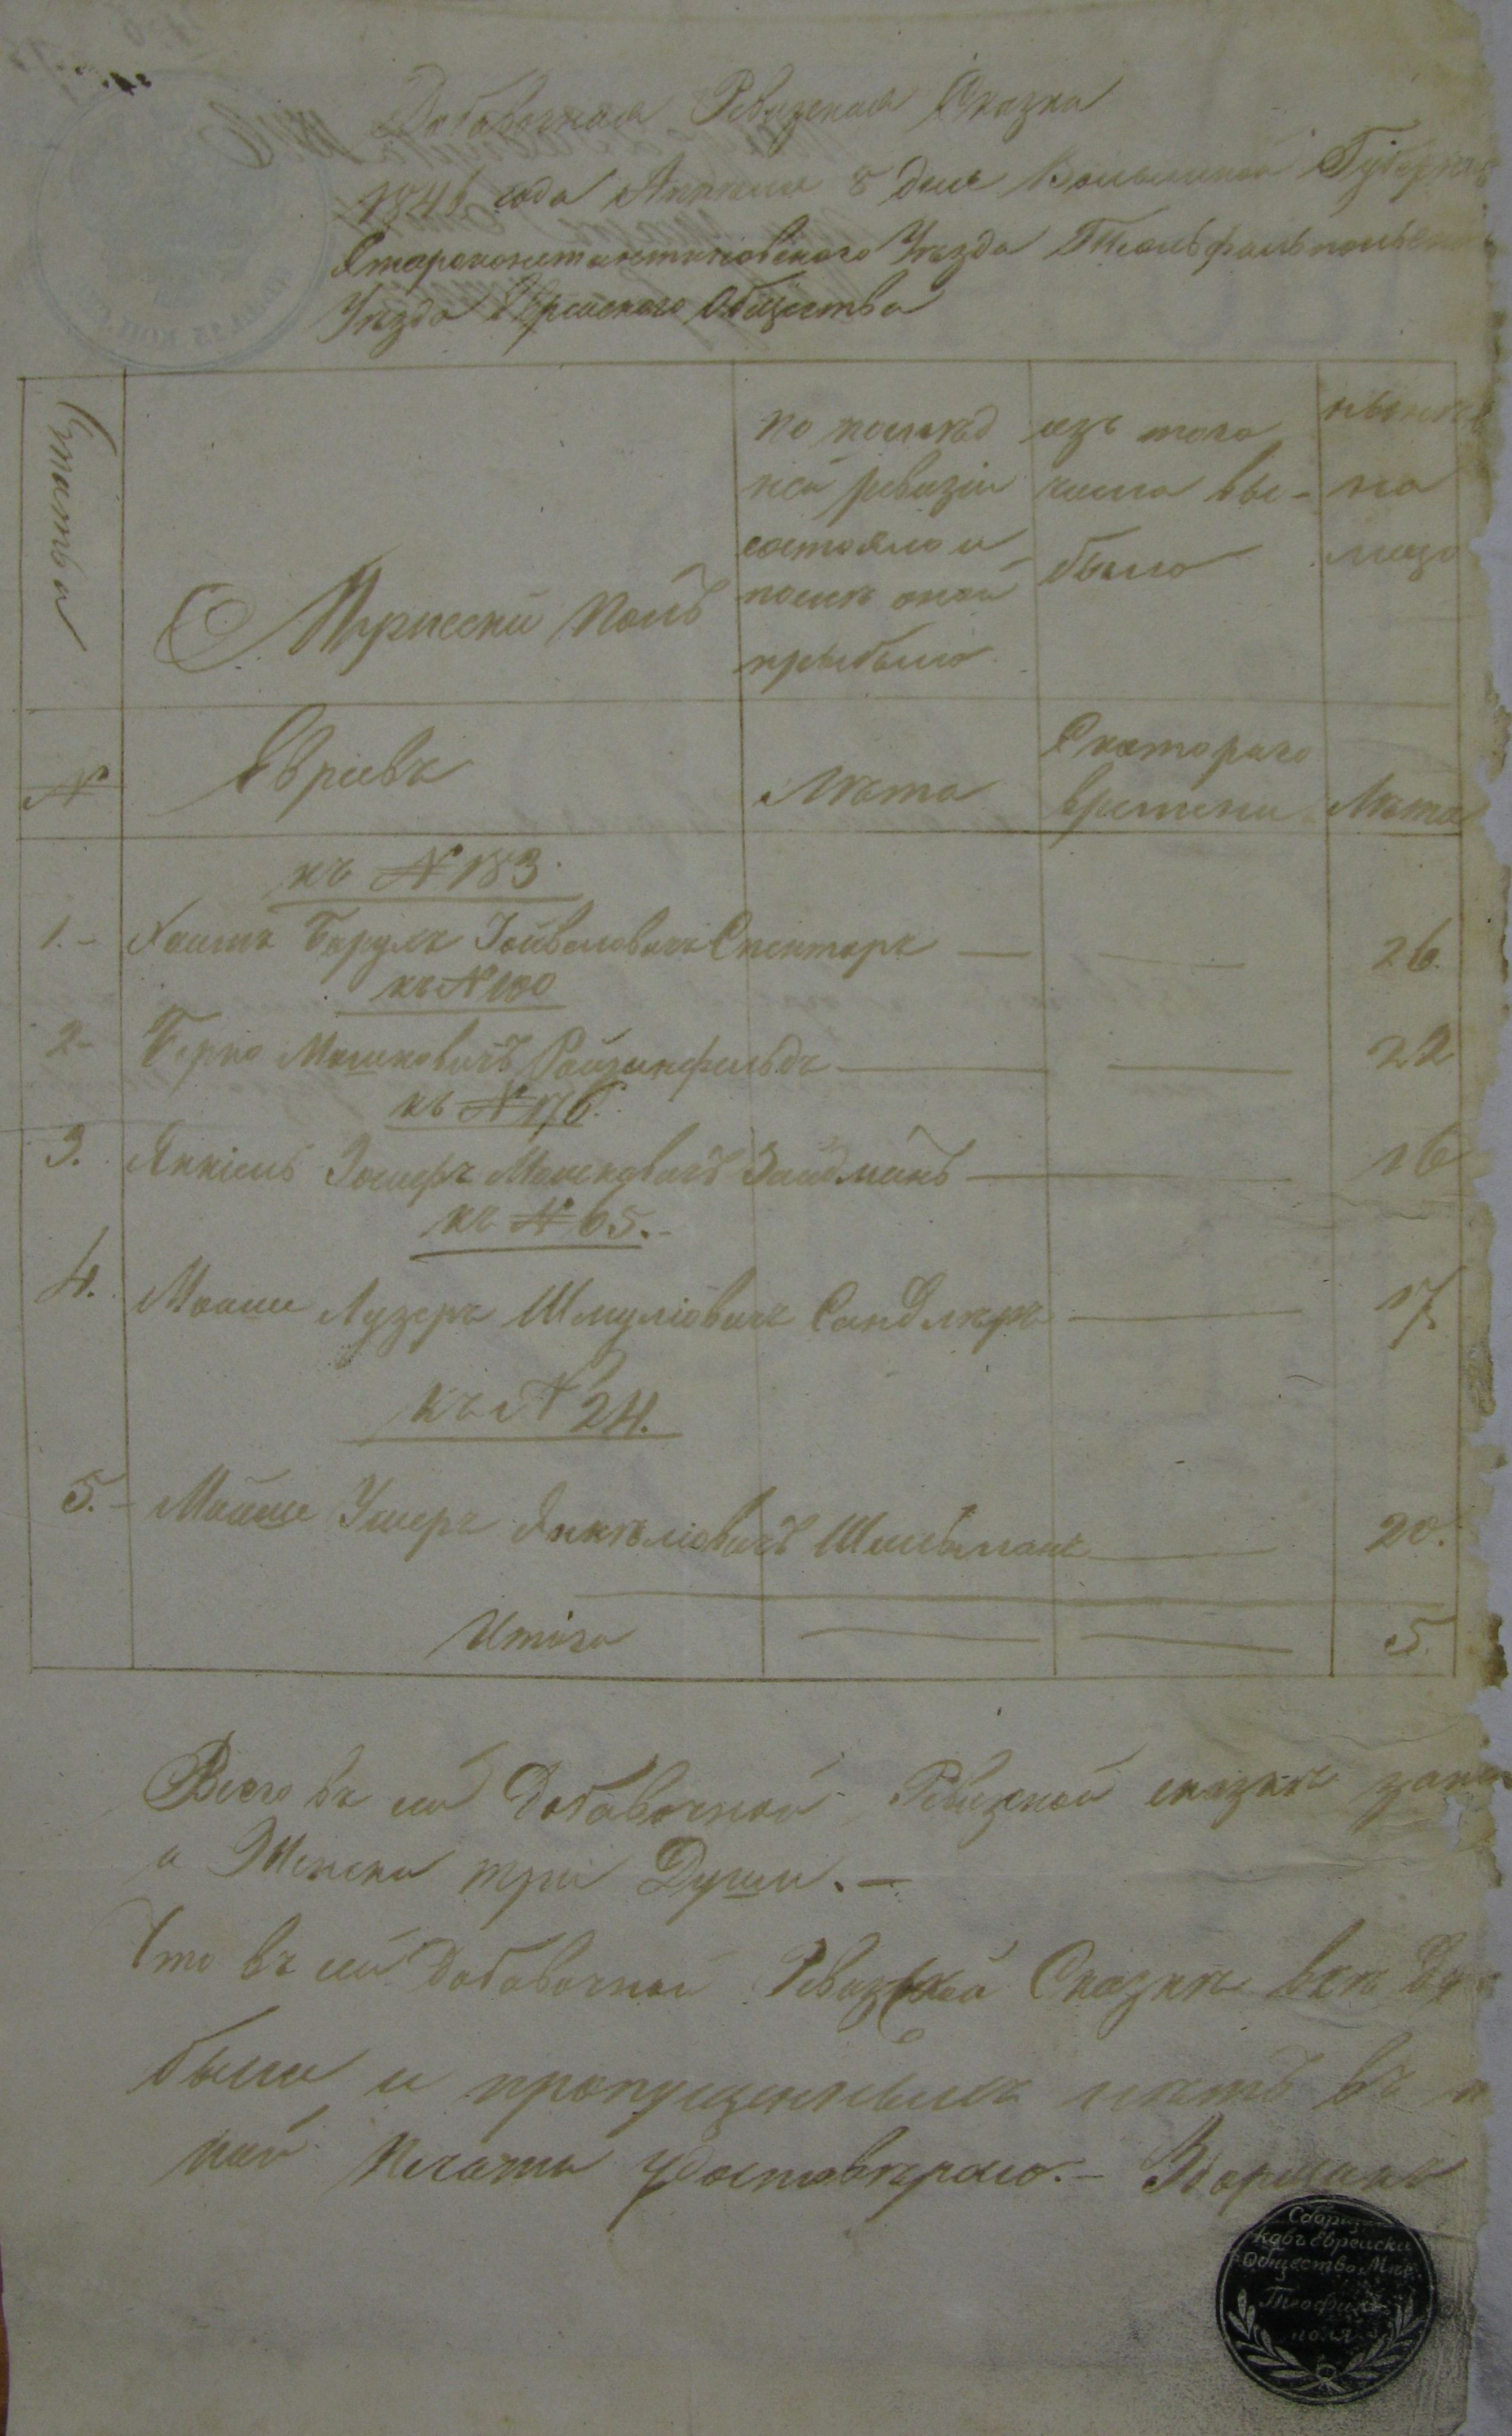 Добавочная Ревизская Сказка
1846 года Апреля 8 дня Волынской Губерніи
Староконстантиновского Уезда Теольфольпольского
Уезда Еврейского Общества
Статьи
Мужески полъ
по послѣд
ней ревизіи
состояло и
после оной
прыбыло
изъ того
числа вы-
было
нынѣ
на
лицо
№
Евріевъ
Лѣта
С котораго
времени
Лѣта
къ №183.
1.- Хаимъ Борухъ Іойвеловичъ Спекторъ — — 26.
къ №100
2- Берко Мошковичъ Райзинфельдъ — — 22
къ №176.
3. Янкіель Іосифъ Мошковичъ Зайдманъ — 16
къ №65.-
4. Моише Лузеръ Шмуліовичъ Сандлѣръ — 17.
къ №24.
5.- Мойше Ушеръ Янкѣліовичъ — 20.
Итого — — 5.
Всего въ сей добавочной Ревизской сказкѣ
а Женска три Души.-
Что въ сей добавочной Ревизской Сказкѣ всѣ
были и пропущенныхъ нѣтъ въ
ной Печати удостовѣраю.-
Сборщи
ковъ Еврейски
Общества Мѣс.
Теофил
поля